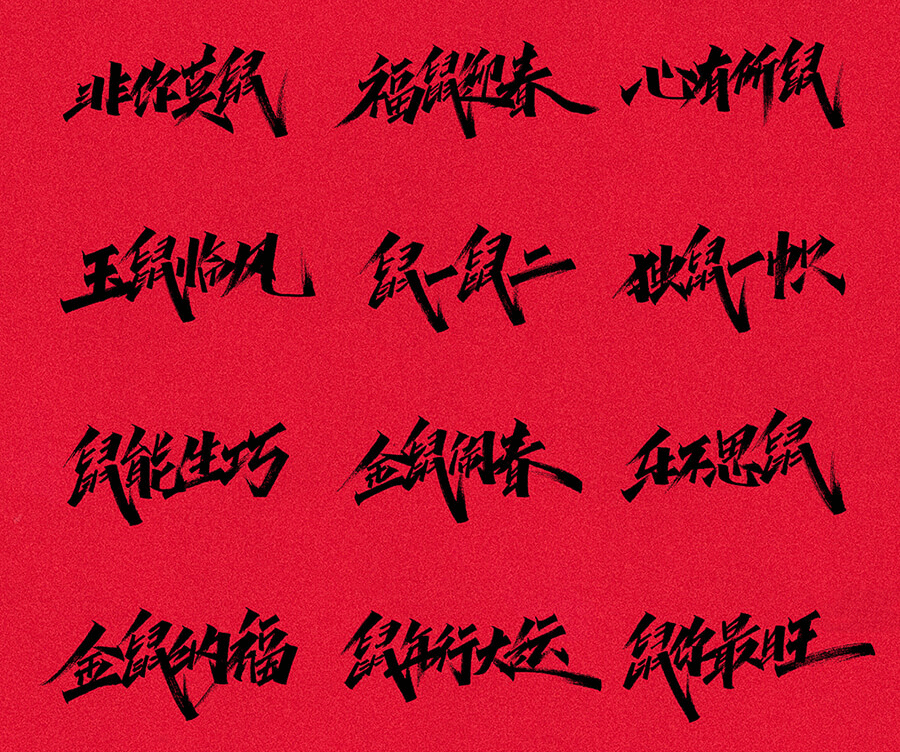 非你莫鼠 福鼠迎春 心有所鼠
玉鼠临风 鼠一鼠二 独鼠一帜
鼠能生巧 金鼠闹春 乐不思鼠
金鼠纳福 鼠年行大运 鼠你最旺